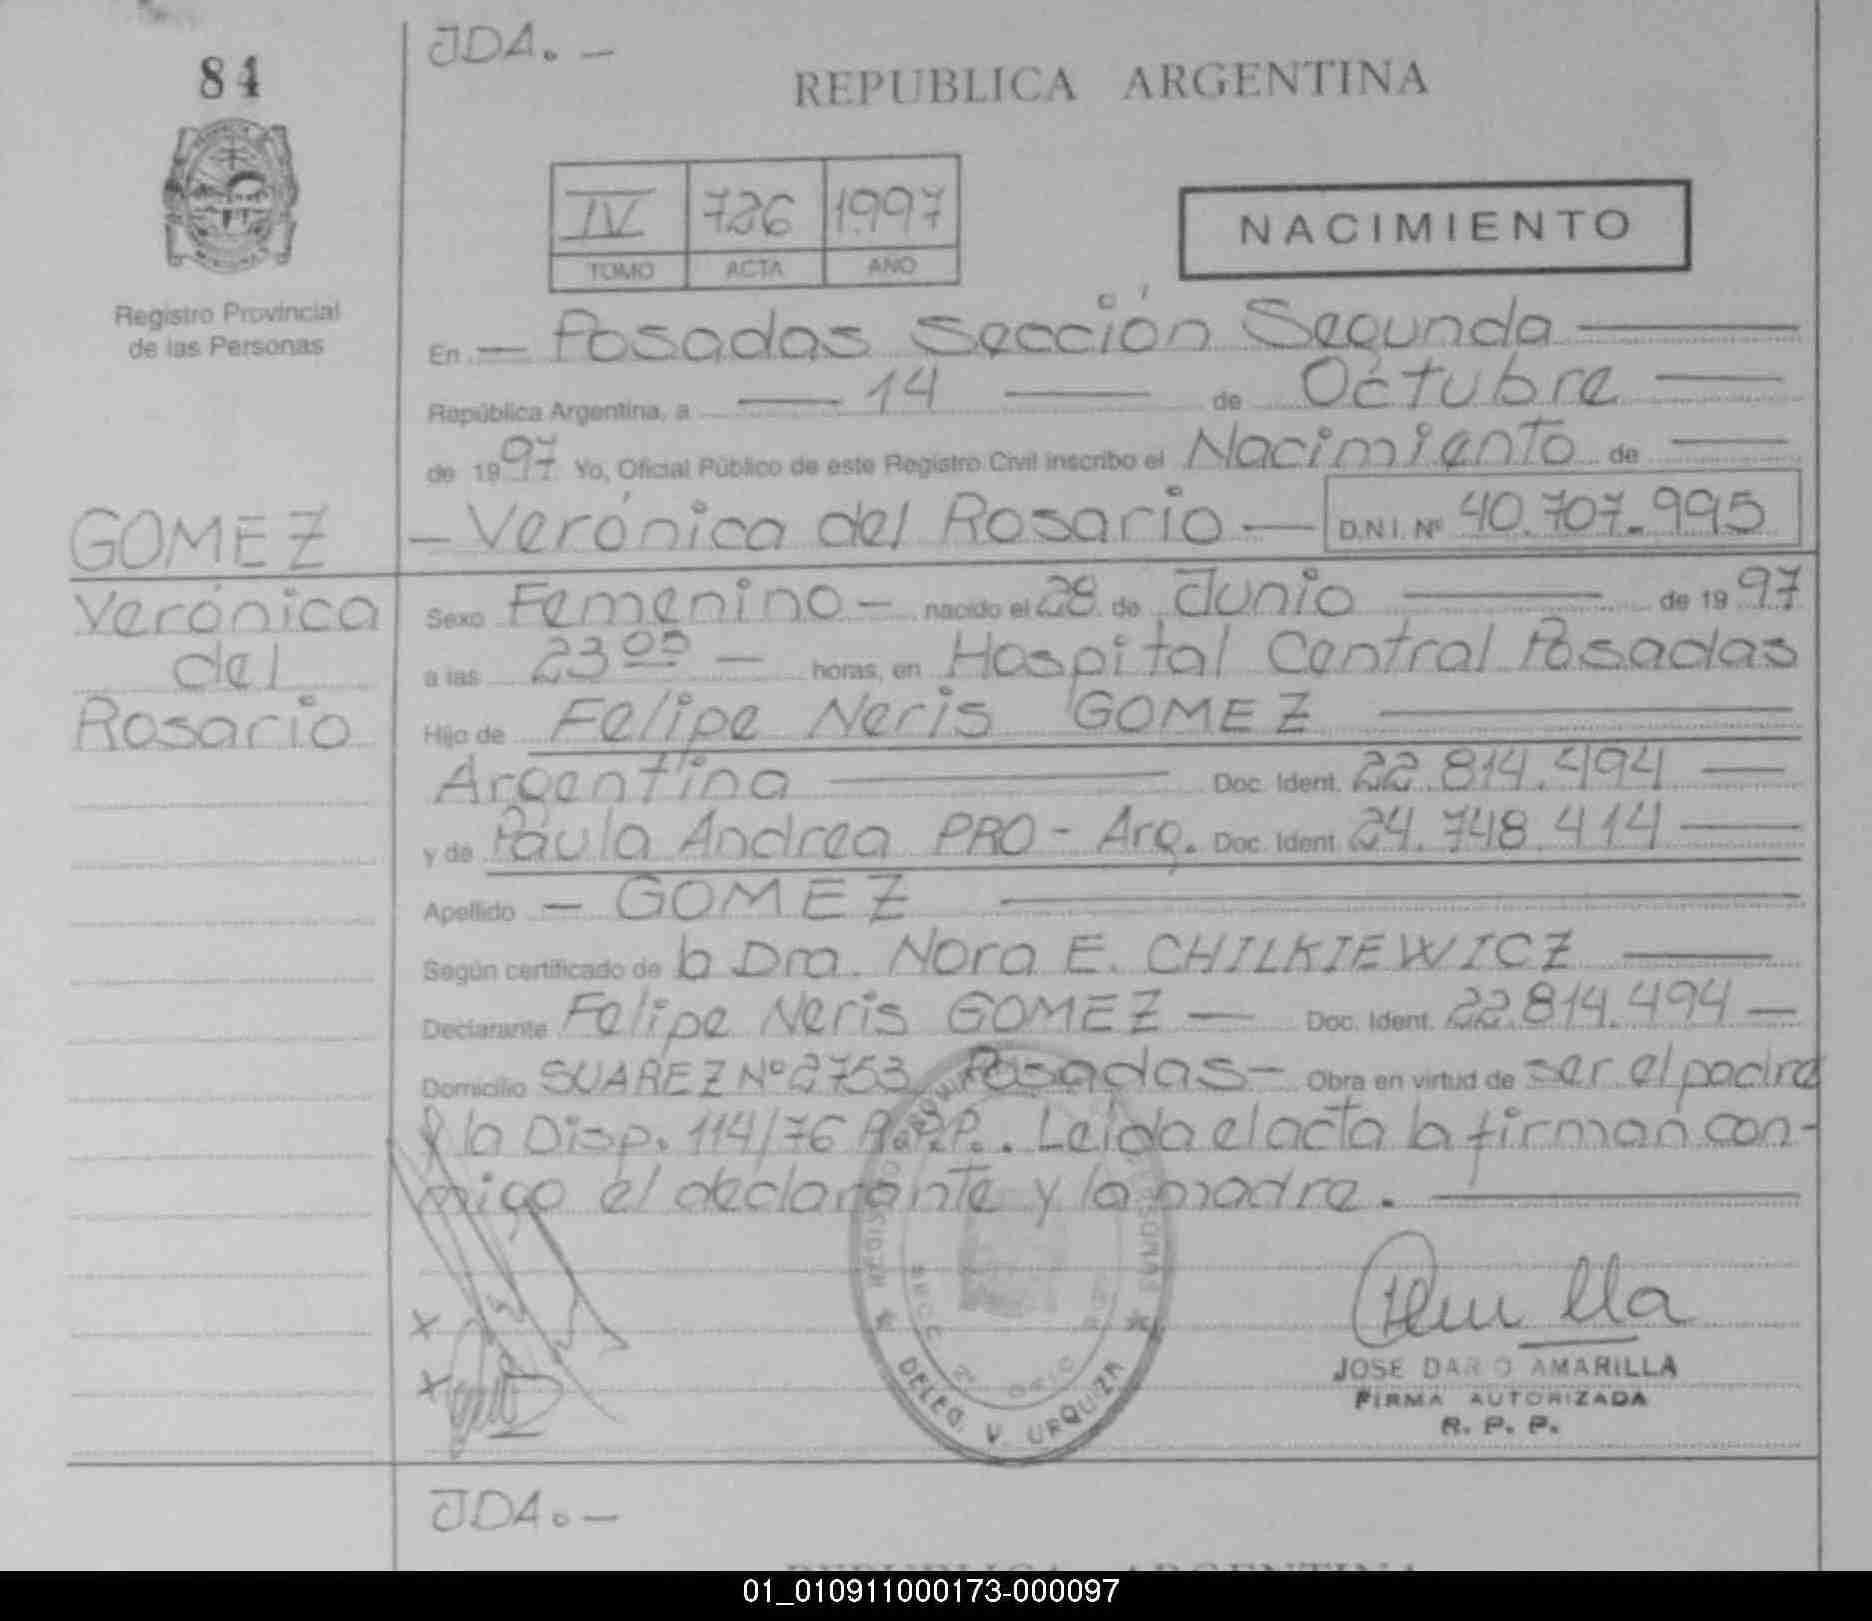 JDA. —
84
REPUBLICA ARGENTINA
IV 786 1997
TOMO ACTA AÑO
NACIMIENTO
Registro Provincial
de las Personas
En — Posadas Sección Segunda
República Argentina, a — 14 — de Octubre —
de 1997 Yo, Oficial Público de este Registro Civil inscribo el Nacimiento de —
GOMEZ
Verónica
del
Rosario
— Verónica del Rosario — D.N.I. Nº 40.707.995
Sexo Femenino — nacido el 28 de Junio — de 1997
a las 23 05 — horas, en Hospital Central Posadas
Hijo de Felipe Neris GOMEZ —
Argentina — Doc. Ident. 22.814.494 —
y de Paula Andrea PRO - Arg. Doc. Ident. 24.748.414 —
Apellido — GOMEZ —
Según certificado de la Dra. Nora E. CHILKIEWICZ —
Declarante Felipe Neris GOMEZ — Doc. Ident. 22.814.494 —
Domicilio SUAREZ Nº 2753 Posadas — Obra en virtud de ser el padre
y la Disp. 114/76 R.P.P.. Leída el acta la firman con-
migo el declarante y la madre. —
x
x
JOSE DARIO AMARILLA
FIRMA AUTORIZADA
R. P. P.
DELEG. V URQUIZA
JDA. —
REPUBLICA ARGENTINA
01_010911000173-000097